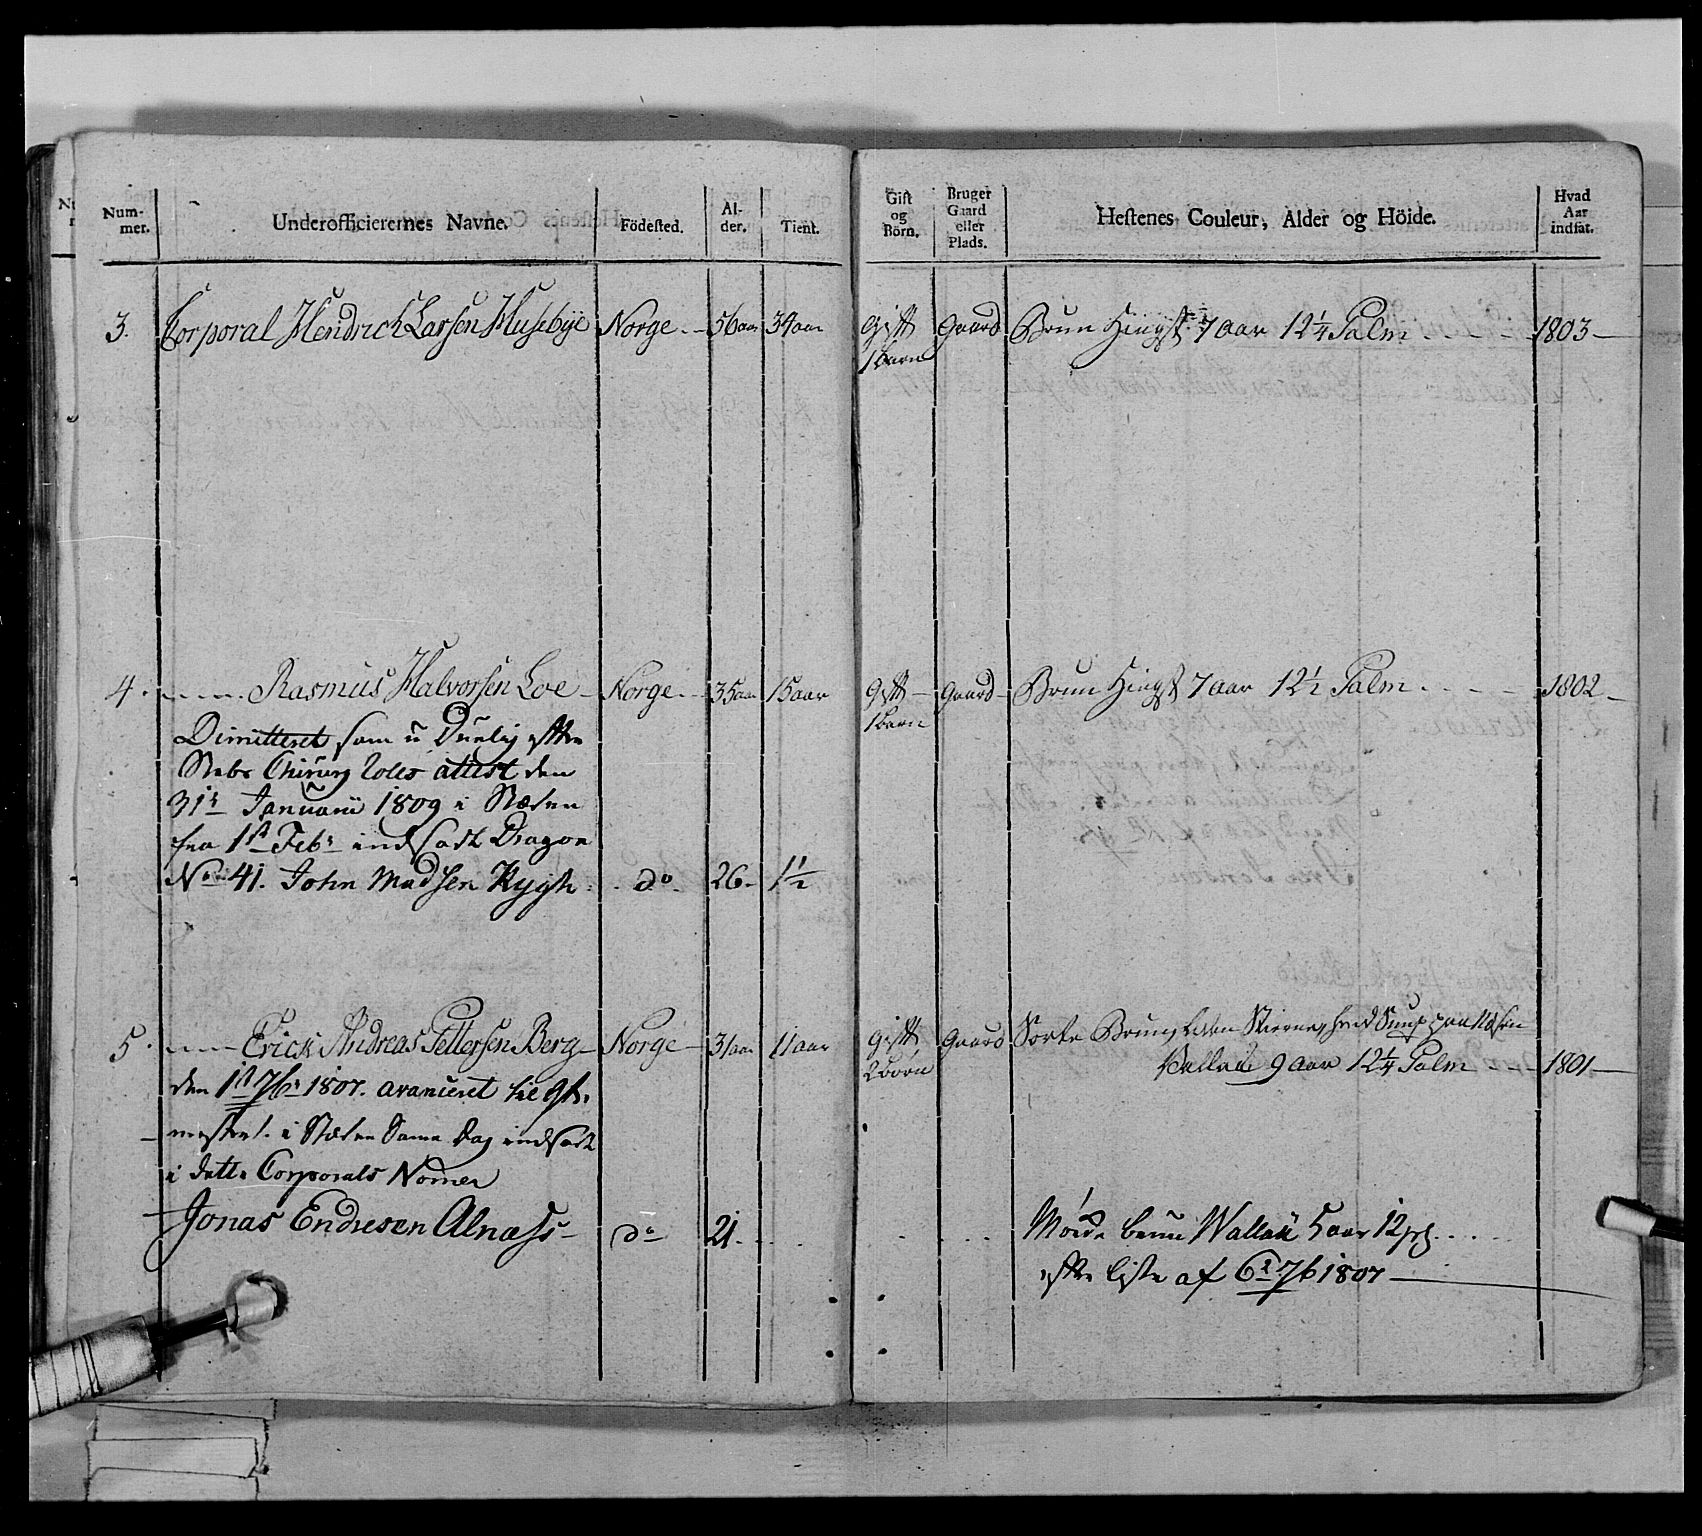 Num-
mer.
Underofficierernes Navne.
Födested.
Al-
der.
Tient.
Gift
og
Börn.
Bruger
Gaard
eller
Plads.
Hestenes Couleur, Alder og Höide.
Hvad
Aar
indsat.
3. Corporal Hendrich Larsen Musebye Norge 56 aar 34 aar Gift Gaard Brun Hingst 7 aar 12 1/4 Palm 1803
1 barn
4. Rasmus Halvorsen Loe Norge 35 aar 15 aar Gift Gaard Brun Hingst 7 aar 12 1/2 Palm 1802
1 barn
Dimitteret som u Duelig efter
Stabs Chirurg attest den
31te Januarii 1809 i Stæden
fra 1ste Febr indsadt Dragon
No 41. John Madsen Kygh do 26 1 1/2
5. Erick Andreas Pettersen Berg Norge 31 aar 11 aar Gift Gaard Sorte Brun, Liden Stierne, hvid
2 börn 9 aar 12 1/4 Palm 1801
den 1ste 7br 1807. avanceret til
i Stæden Samme Dag indsadt
i dette Corporals Nomer
Jonas Endresen Alnæss do 21
Mörk brun Wallak 5 aar 12 pl.
efter Liste af 6te 7b 1807